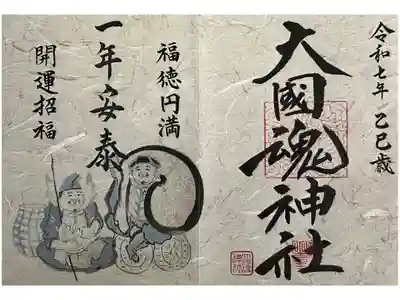 令和七年 乙巳歳
大國魂神社
福徳円満
一年安泰
開運招福